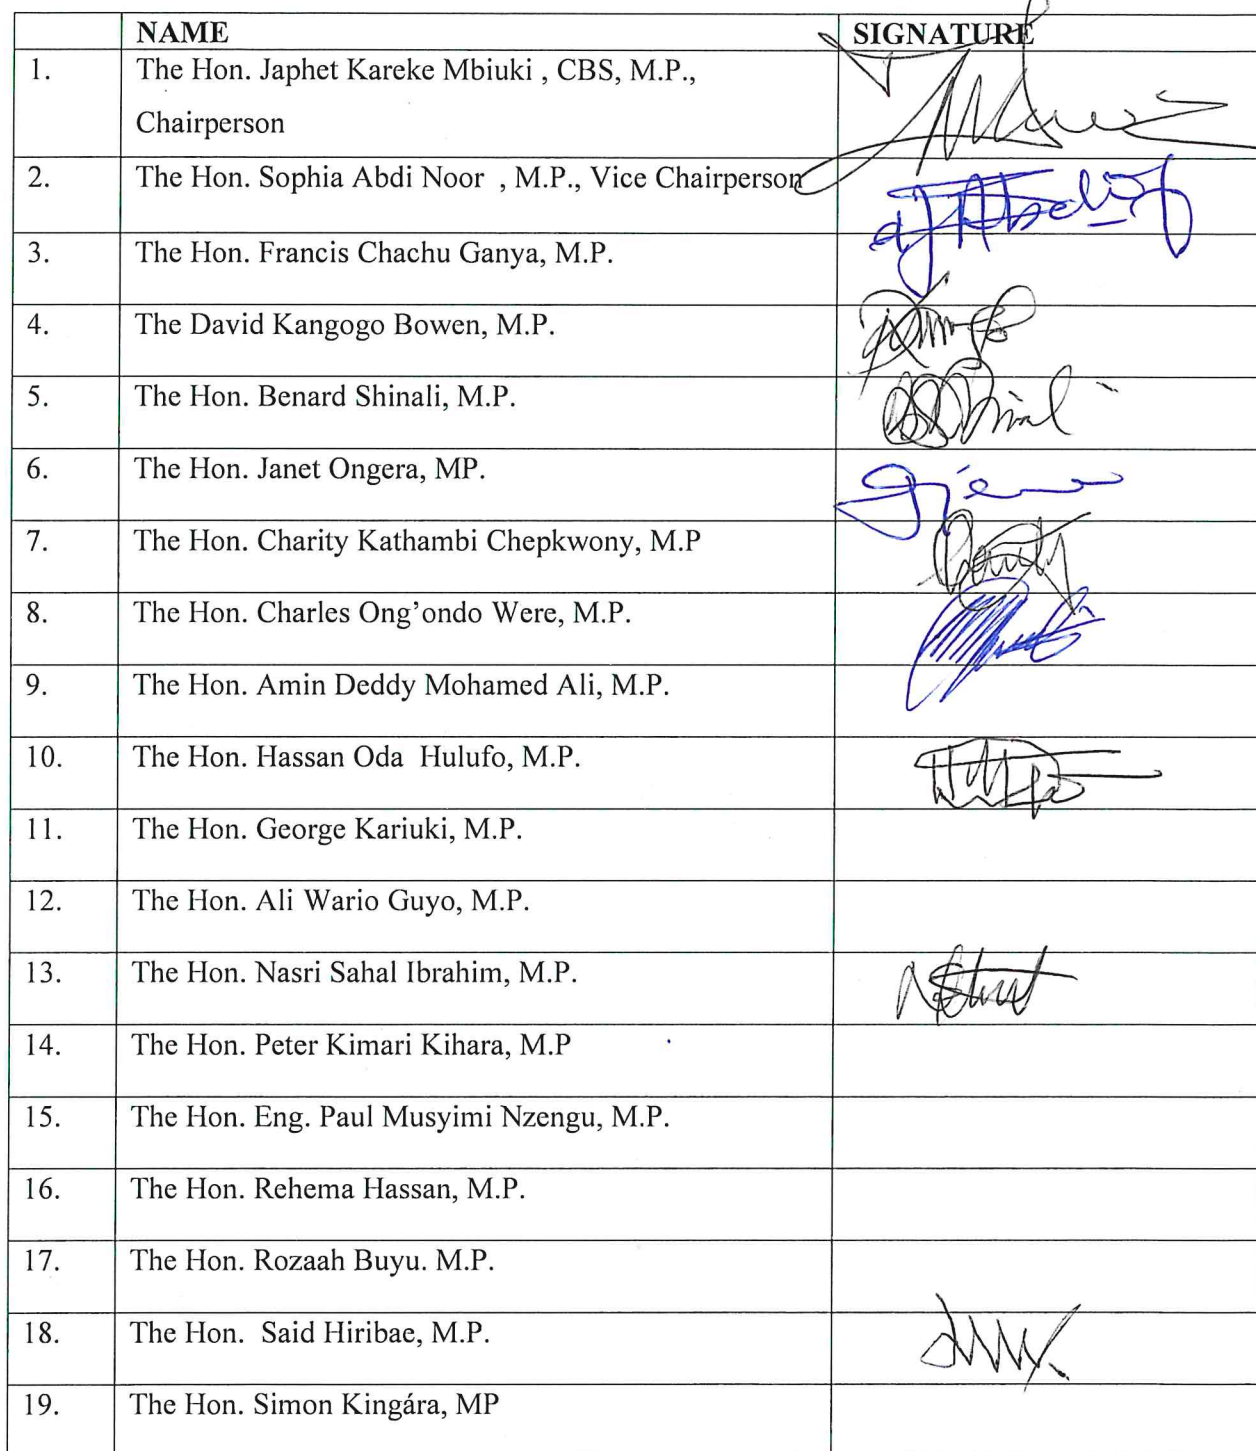 NAME SIGNATURE
1. The Hon. Japhet Kareke Mbiuki , CBS, M.P.,
Chairperson
2. The Hon. Sophia Abdi Noor , M.P., Vice Chairperson
3. The Hon. Francis Chachu Ganya, M.P.
4. The David Kangogo Bowen, M.P.
5. The Hon. Benard Shinali, M.P.
6. The Hon. Janet Ongera, MP.
7. The Hon. Charity Kathambi Chepkwony, M.P
8. The Hon. Charles Ong’ondo Were, M.P.
9. The Hon. Amin Deddy Mohamed Ali, M.P.
10. The Hon. Hassan Oda Hulufo, M.P.
11. The Hon. George Kariuki, M.P.
12. The Hon. Ali Wario Guyo, M.P.
13. The Hon. Nasri Sahal Ibrahim, M.P.
14. The Hon. Peter Kimari Kihara, M.P
15. The Hon. Eng. Paul Musyimi Nzengu, M.P.
16. The Hon. Rehema Hassan, M.P.
17. The Hon. Rozaah Buyu. M.P.
18. The Hon. Said Hiribae, M.P.
19. The Hon. Simon Kingára, MP